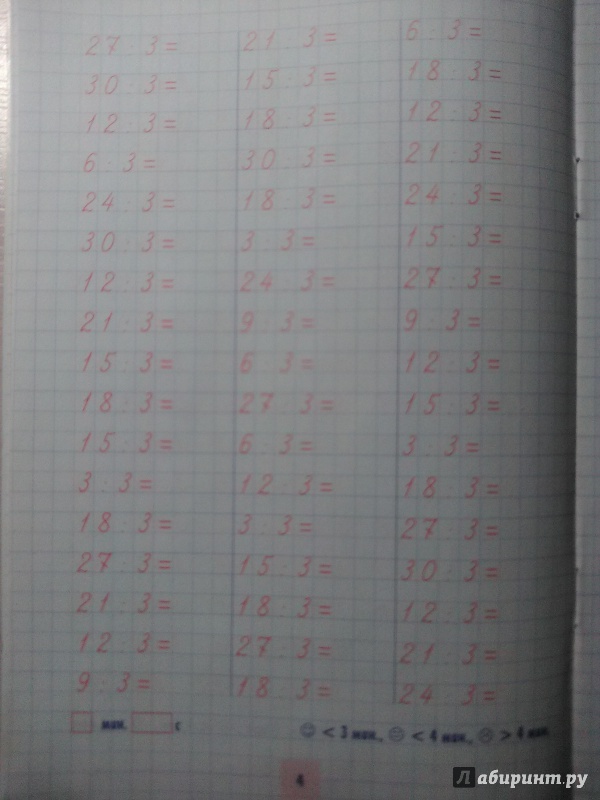 27 : 3 =
30 : 3 =
12 : 3 =
6 : 3 =
24 : 3 =
30 : 3 =
12 : 3 =
21 : 3 =
15 : 3 =
18 : 3 =
15 : 3 =
3 : 3 =
18 : 3 =
27 : 3 =
21 : 3 =
12 : 3 =
9 : 3 =
21 : 3 =
15 : 3 =
18 : 3 =
30 : 3 =
18 : 3 =
3 : 3 =
24 : 3 =
9 : 3 =
6 : 3 =
27 : 3 =
6 : 3 =
12 : 3 =
3 : 3 =
15 : 3 =
18 : 3 =
27 : 3 =
18 : 3 =
6 : 3 =
18 : 3 =
12 : 3 =
21 : 3 =
24 : 3 =
15 : 3 =
27 : 3 =
9 : 3 =
12 : 3 =
15 : 3 =
3 : 3 =
18 : 3 =
27 : 3 =
30 : 3 =
12 : 3 =
21 : 3 =
24 : 3 =
мин. с
< 3 мин., < 4 мин., > 4 мин.
4
Лабиринт.ру